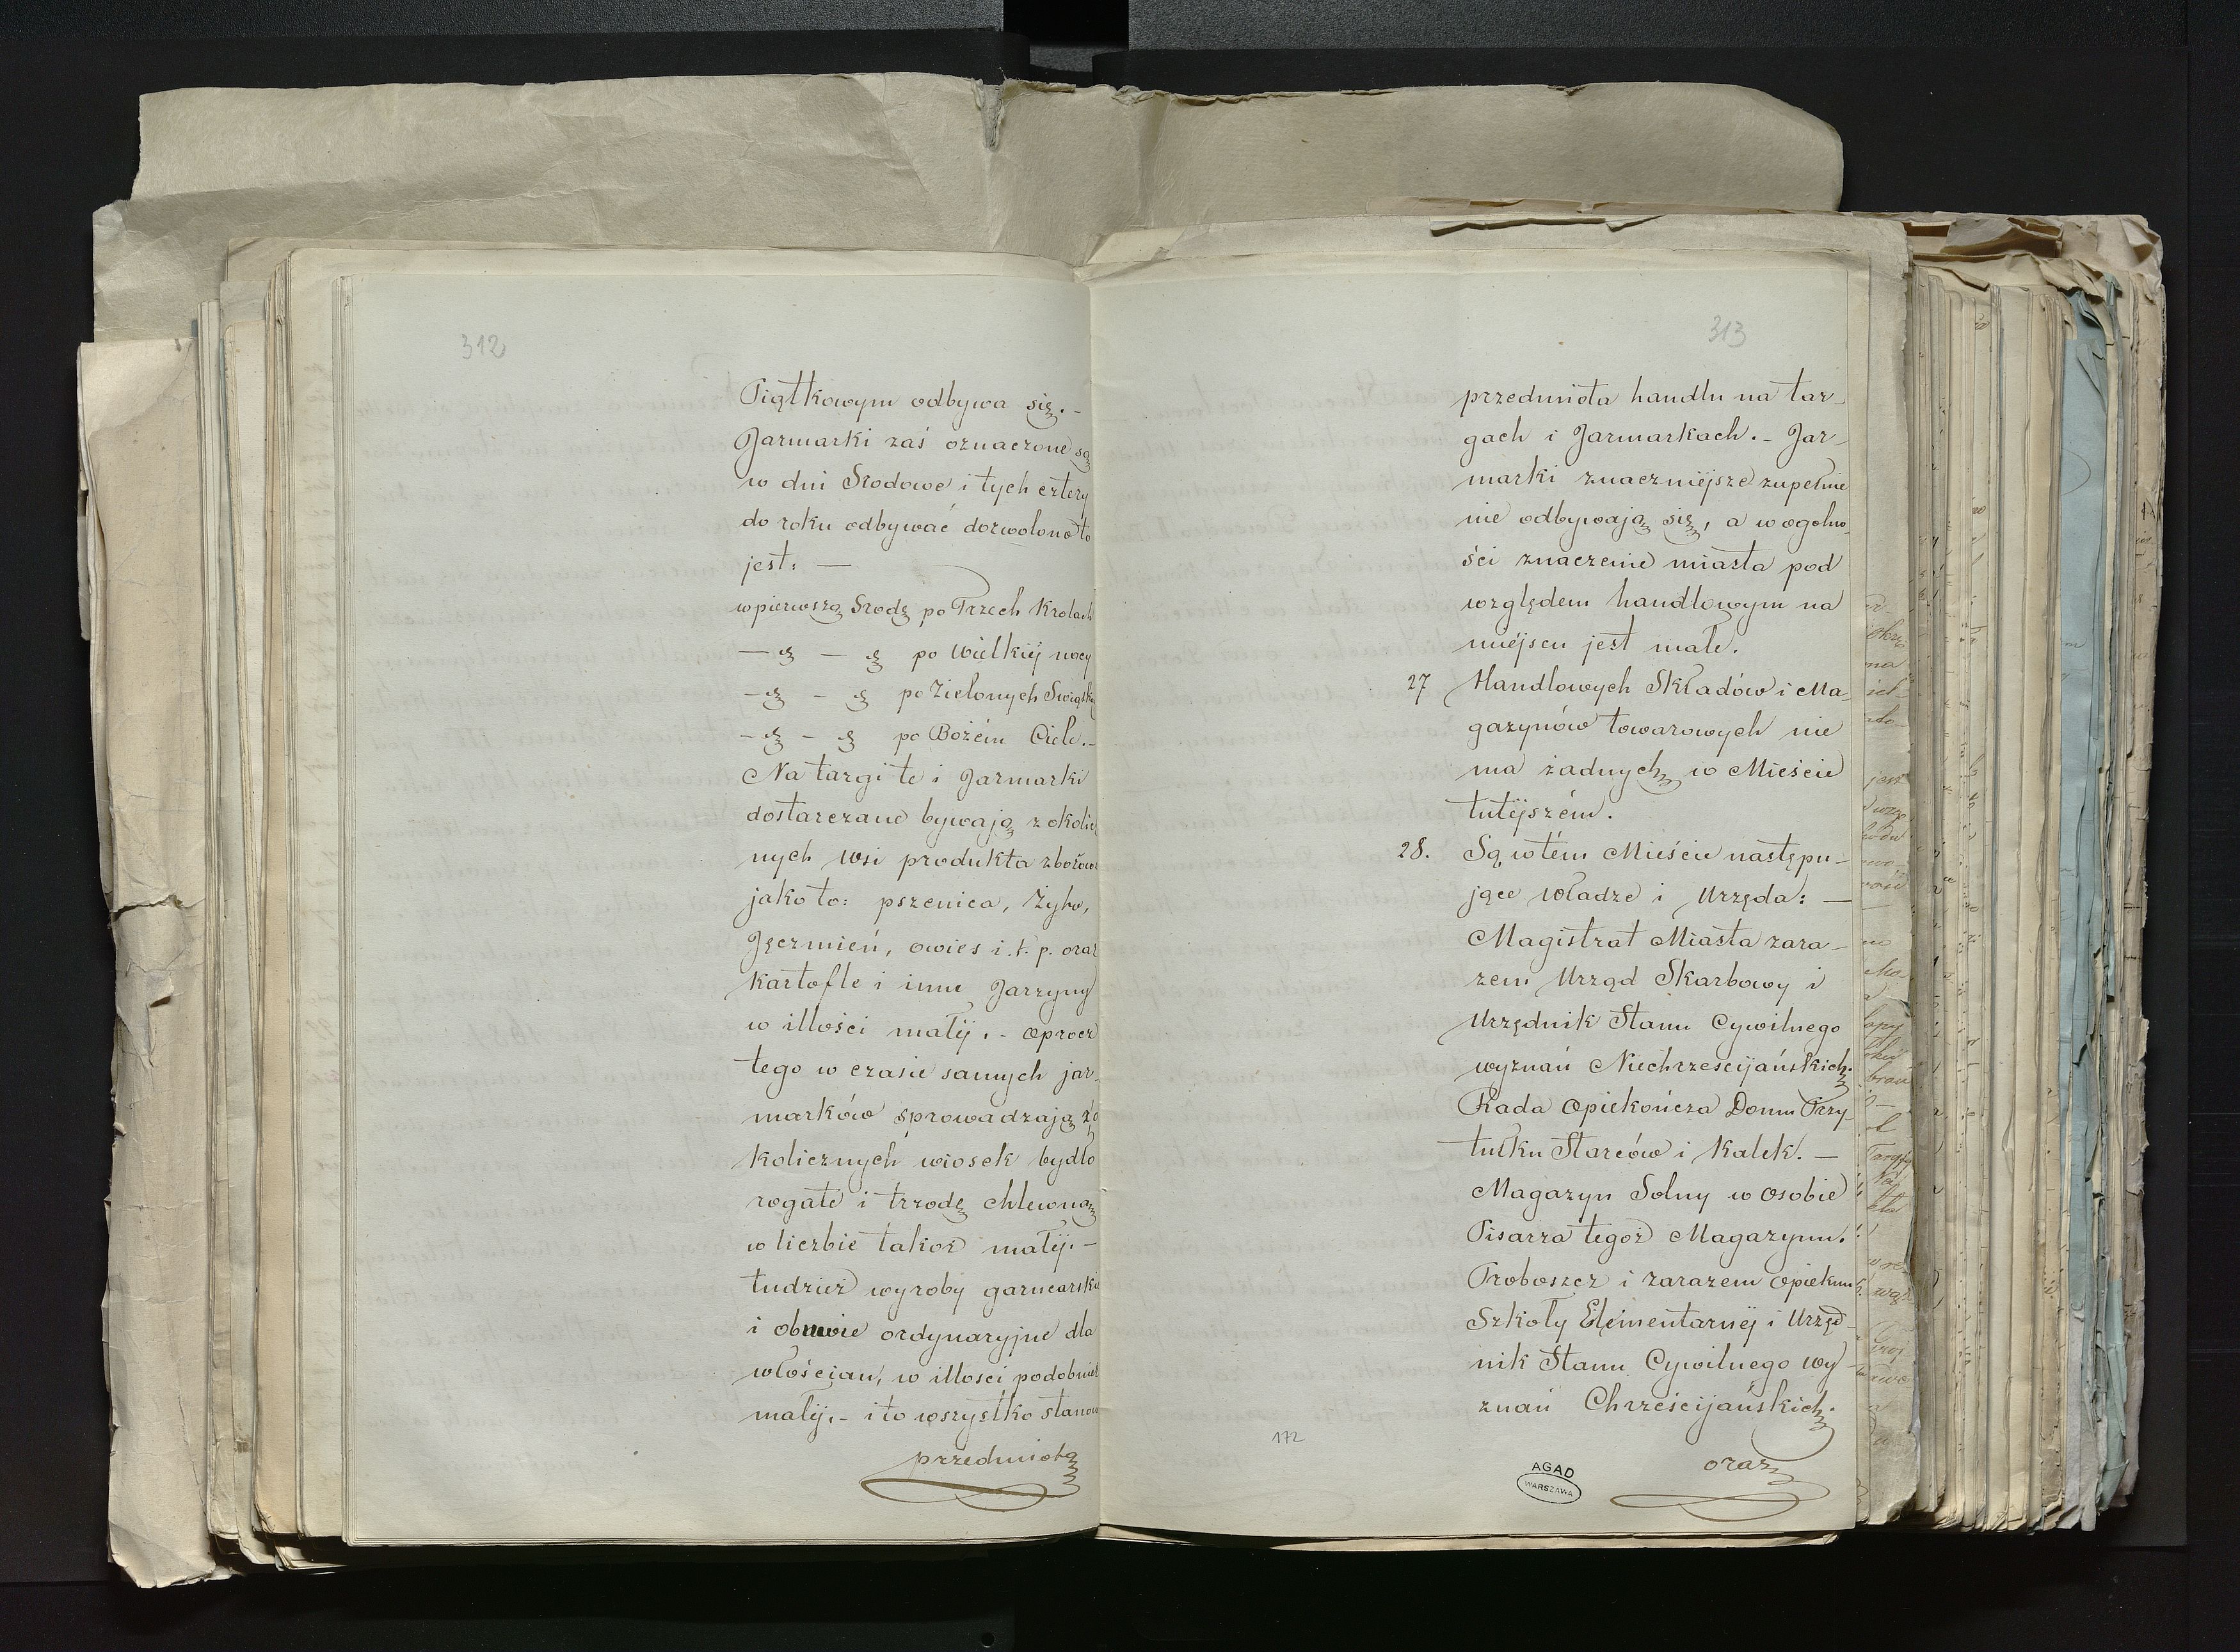 312
Piątkowym odbywa się. -
Jarmarki zaś oznaczone są
w dni Srodowe i tych cztery
do roku odbywać dozwolono to
jest: —
w pierwszą Srodę po Trzech Krolach
— ą — ę po Wielkiéj nocy
— ą — ę po Zielonych Swiątkach
— ą — ę po Bożém Ciele. -
Na targi te i Jarmarki
dostarczane bywają z okolicz
nych wsi produkta zbożowe
jako to: pszenica, Żyto,
Jęczmień, owies i. t. p. oraz
kartofle i inne Jarzyny
w illości małéj. - oprocz
tego w czasie samych jar-
marków sprowadzają z o
kolicznych wiosek bydło
rogate i trzodę chlewną
w liczbie takoż małéj. -
tudzież wyroby garncarskie
i obuwie ordynaryjne dla
włościan, w illosci podobnież
małéj. - i to wszystko stanowi
przedmiota
313
przedmiota handlu na tar-
gach i Jarmarkach. - Jar-
marki znaczniéjsze zupełnie
nie odbywają się, a w ogolno-
ści znaczenie miasta pod
względem handlowym na
miéjscu jest małe.
27 Handlowych Składów i Ma-
gazynów towarowych nie
ma żadnych w Mieście
tutéjszém.
28. Są w tém Mieście następu-
jące władze i Urzęda: —
Magistrat Miasta zara-
zem Urząd Skarbowy i
Urzędnik Stanu Cywilnego
wyznań Niechrzescijańskich.
Rada Opiekończa Domu Przy-
tułku Starców i Kalek. —
Magazyn Solny w osobie
Pisarza tegoż Magazynu.
Proboszcz i zarazem Opiekun
Szkoły Elementarnéj i Urzęd-
nik Stanu Cywilnego wy-
znań Chrześcijańskich.
oraz
172
AGAD
WARSZAWA